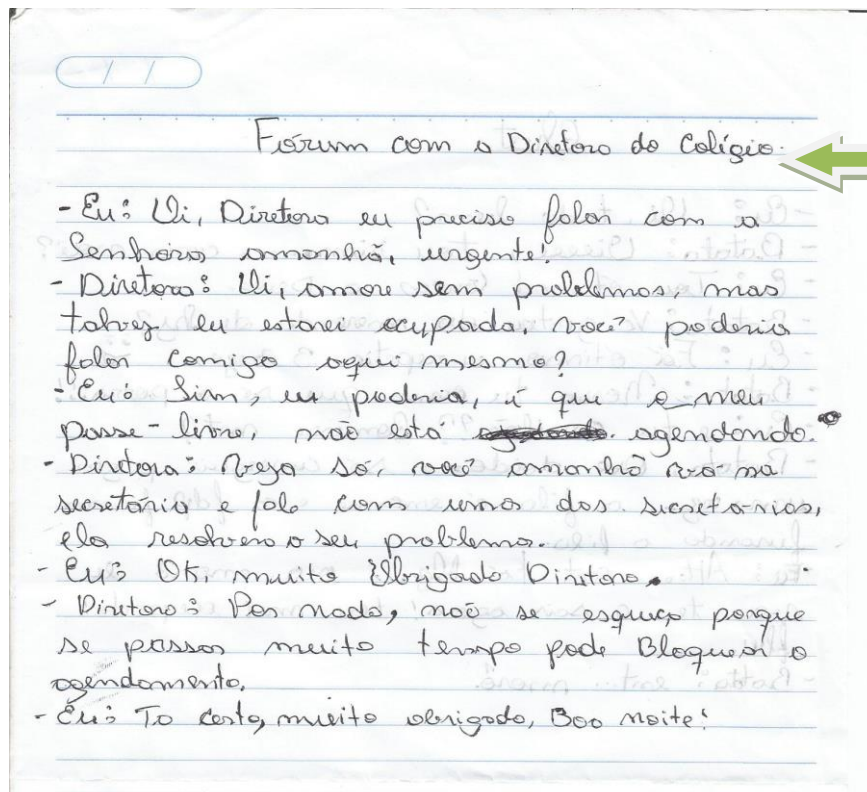 / /
Fórum com a Diretora do Colégio.
- Eu: Oi, Diretora eu preciso falar com a
Senhora amanhã, urgente!
- Diretora: Oi, amore sem problemas, mas
talvez eu estarei ocupada, você poderia
falar comigo aqui mesmo?
- Eu: Sim, eu poderia, é que o meu
passe-livre, não está agendando.
- Diretora: Veja só, você amanhã vá na
secretária e fale com uma das secretarias,
ela resolvera o seu problema.
- Eu: Ok, muito Obrigado Diretora.
- Diretora: Por nada, não se esqueça porque
se passar muito tempo pode Bloquear o
agendamento.
- Eu: To certo, muito obrigado, Boa noite!